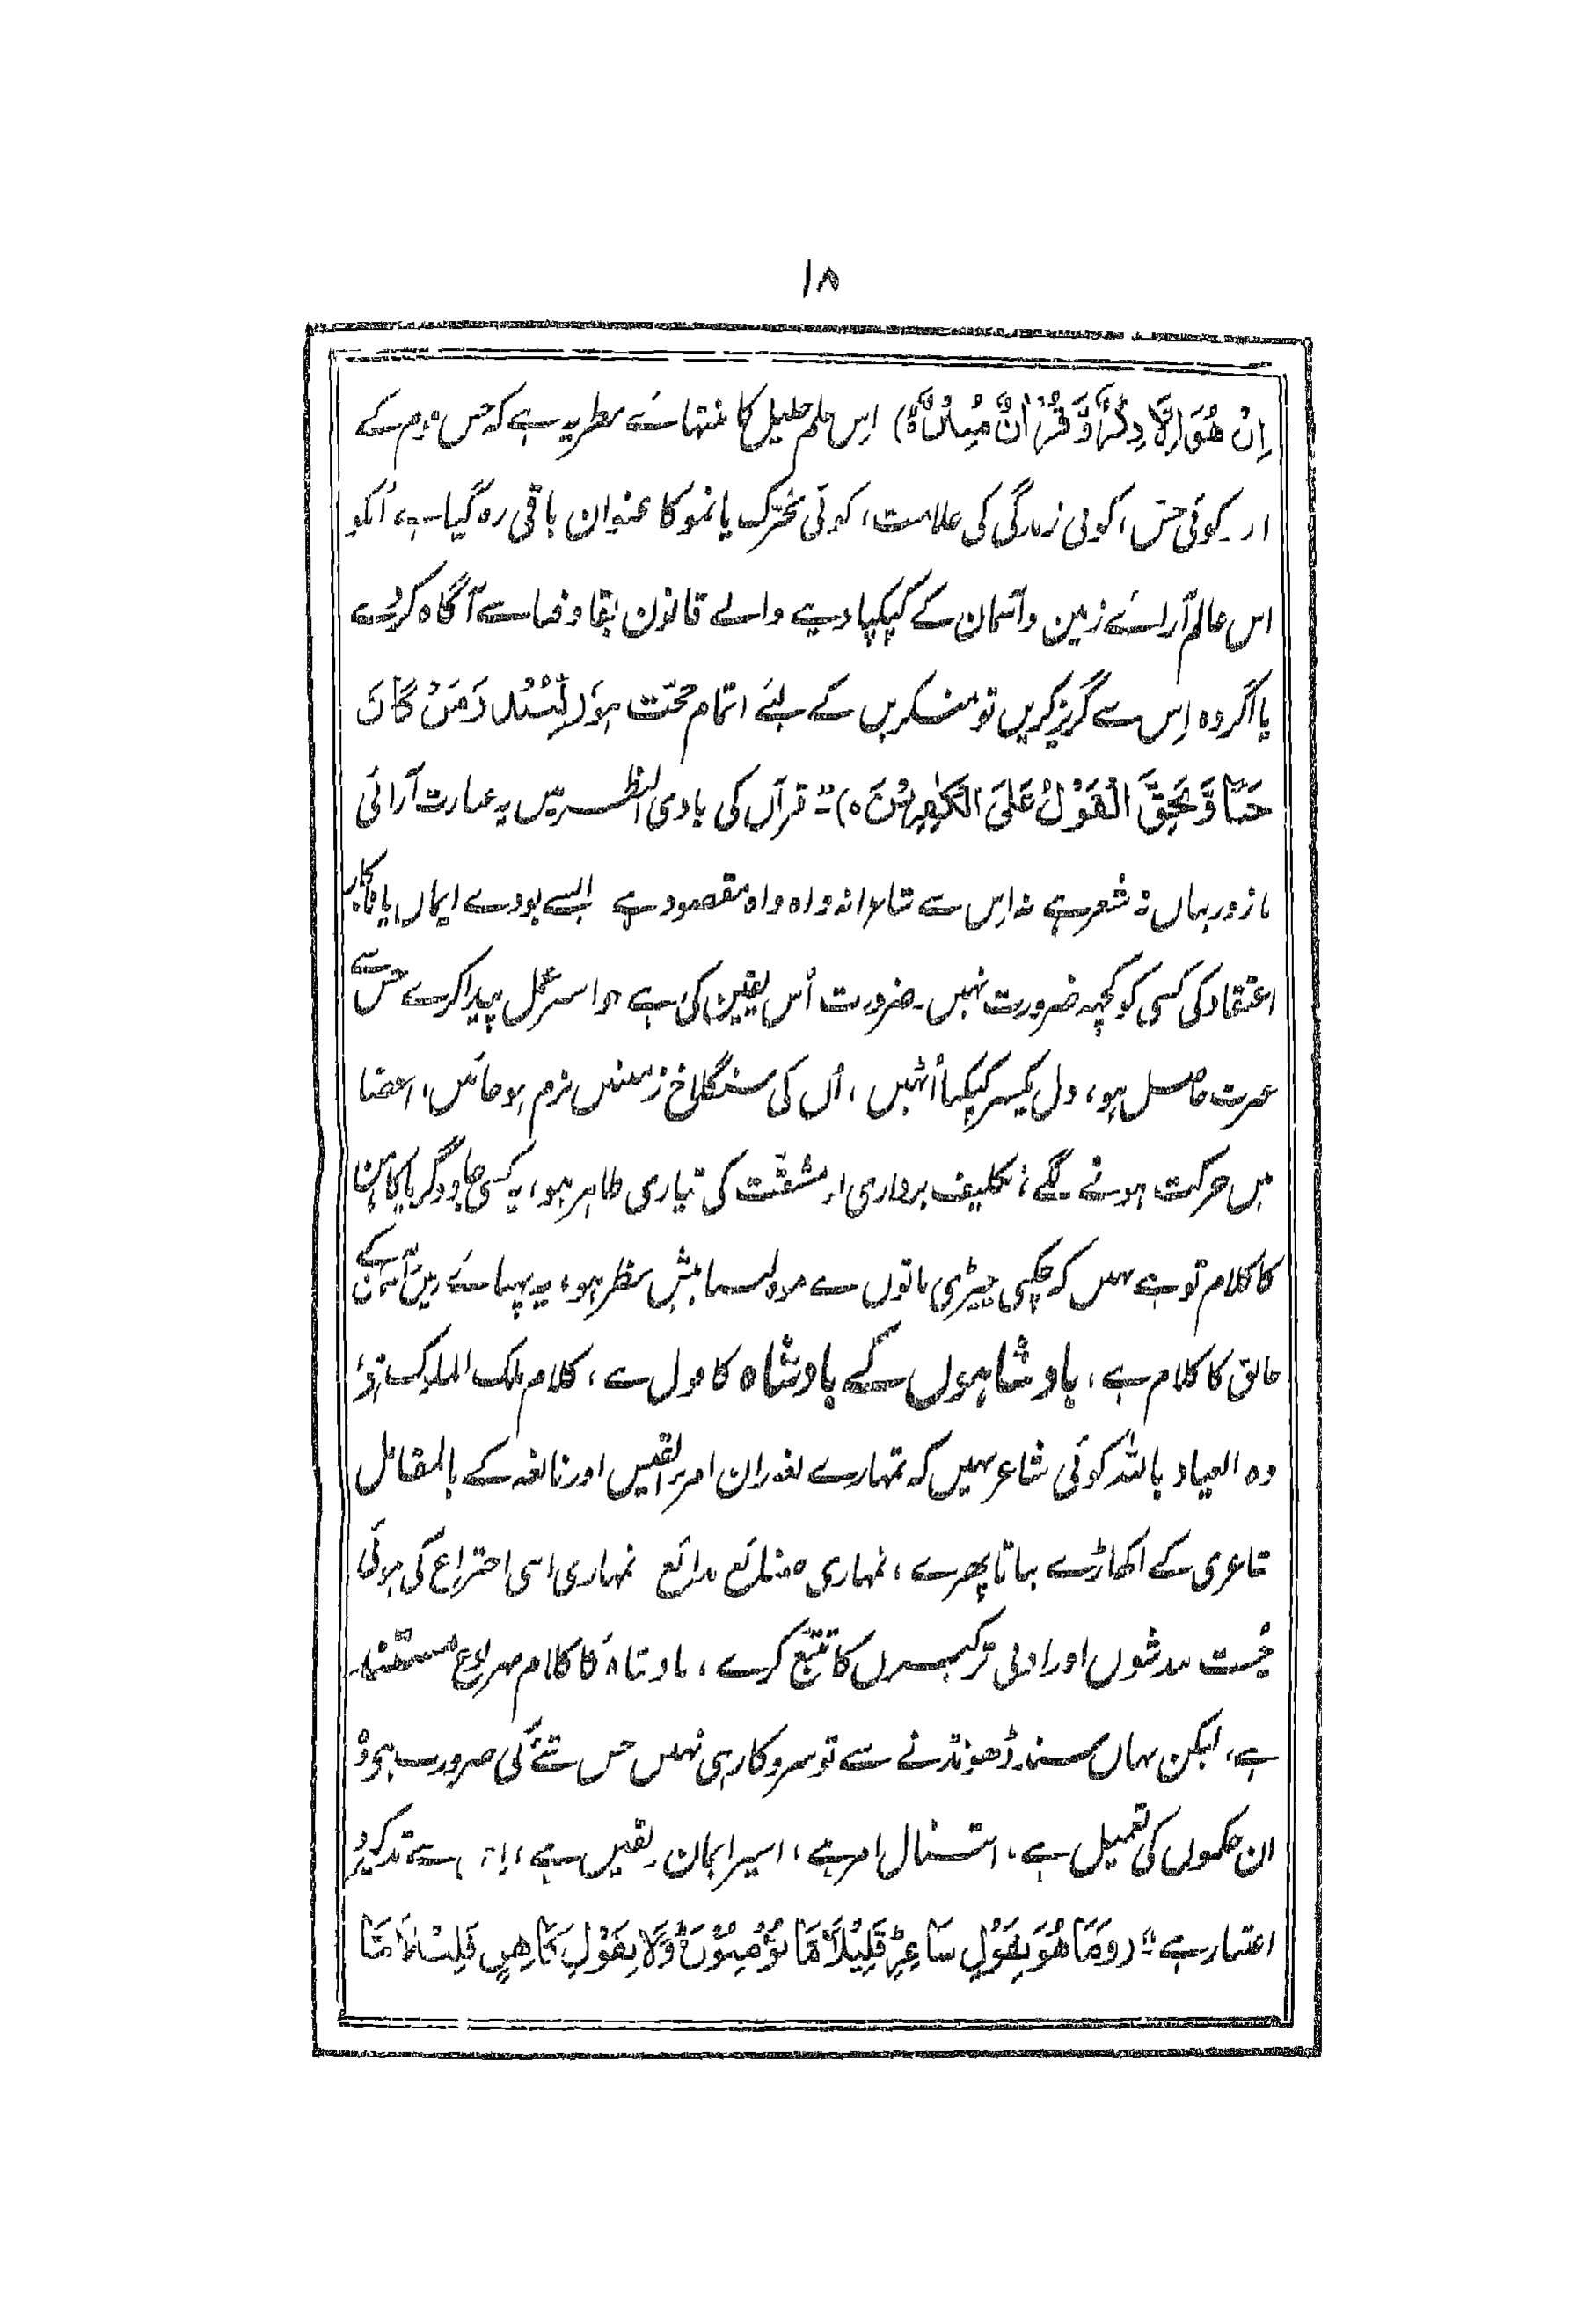 ۱۸
اِنْ هُوَ اِلَّا ذِكْرٌ وَّ قُرْاٰنٌ مُّبِيْنٌ ۝) اِس علم جلیل کا منتہائے نظر یہ ہے کہ جس قوم کے
اندر کوئی حِس، کوئی زندگی کی علامت، کوئی تحرّک یا نمو کا عنوان باقی رہ گیا ہے، اُسکو
اس عالم آرائے زمین و آسمان کے کپکپا دینے والے قانون بقا و فنا سے آگاہ کردے
یا اگر وہ اِس سے گریز کریں تو منکرین کے لئے اتمام حجّت ہو (لِّيُنْذِرَ مَنْ كَانَ
حَيًّا وَّ يَحِقَّ الْقَوْلُ عَلَى الْكٰفِرِيْنَ ۝)۔ قرآن کی بادی النظر میں یہ عبارت آرائی
نازور یہاں نہ شعر ہے نہ اِس سے شاعرانہ واہ واہ مقصود ہے ایسے بودے ایمان یا ناکار
اعتقاد کی کسی کو کچھ ضرورت نہیں۔ ضرورت اُس یقین کی ہے جو اسپر عمل پیدا کرے جس سے
عبرت حاصل ہو، دل یکسر کپکپا اُٹھیں، اُن کی سنگلاخ زمینیں نرم ہو جائیں، اعضا
میں حرکت ہونے لگے، تکلیف برداری اور مشقّت کی تیاری ظاہر ہو، یہ کسی جادوگر یا کاہن
کا کلام تو ہے نہیں کہ چکنی چپڑی باتوں سے مزہ لینا پیشِ نظر ہو، یہ پہنائے زمین و آسمان کے
خالق کا کلام ہے، بادشاہوں کے بادشاہ کا قول ہے، کلام ملک الملوک ہے،
وہ العیاذ باللہ کوئی شاعر نہیں کہ تمہارے لغدران امرءالقیس اور نابغہ کے بالمقابل
شاعری کے اکھاڑے بناتا پھرے، تمہاری صنائع بدائع تمہاری اسی اختراع کی ہوئی
چُست بندشوں اور ادبی ترکیبوں کا تتبّع کرے، بادشاہ کا کلام بہر نوع مستند
ہے، لیکن یہاں سند ڈھونڈنے سے تو سروکار ہی نہیں جس شئے کی ضرورت ہے وہ
ان حکموں کی تعمیل ہے، امتثال امر ہے، اسپر ایمان و یقین ہے، اِس سے تذکیر و
اعتبار ہے۔ (وَمَا هُوَ بِقَوْلِ شَاعِرٍ قَلِيْلًا مَّا تُؤْمِنُوْنَ وَلَا بِقَوْلِ كَاهِنٍ قَلِيْلًا مَّا